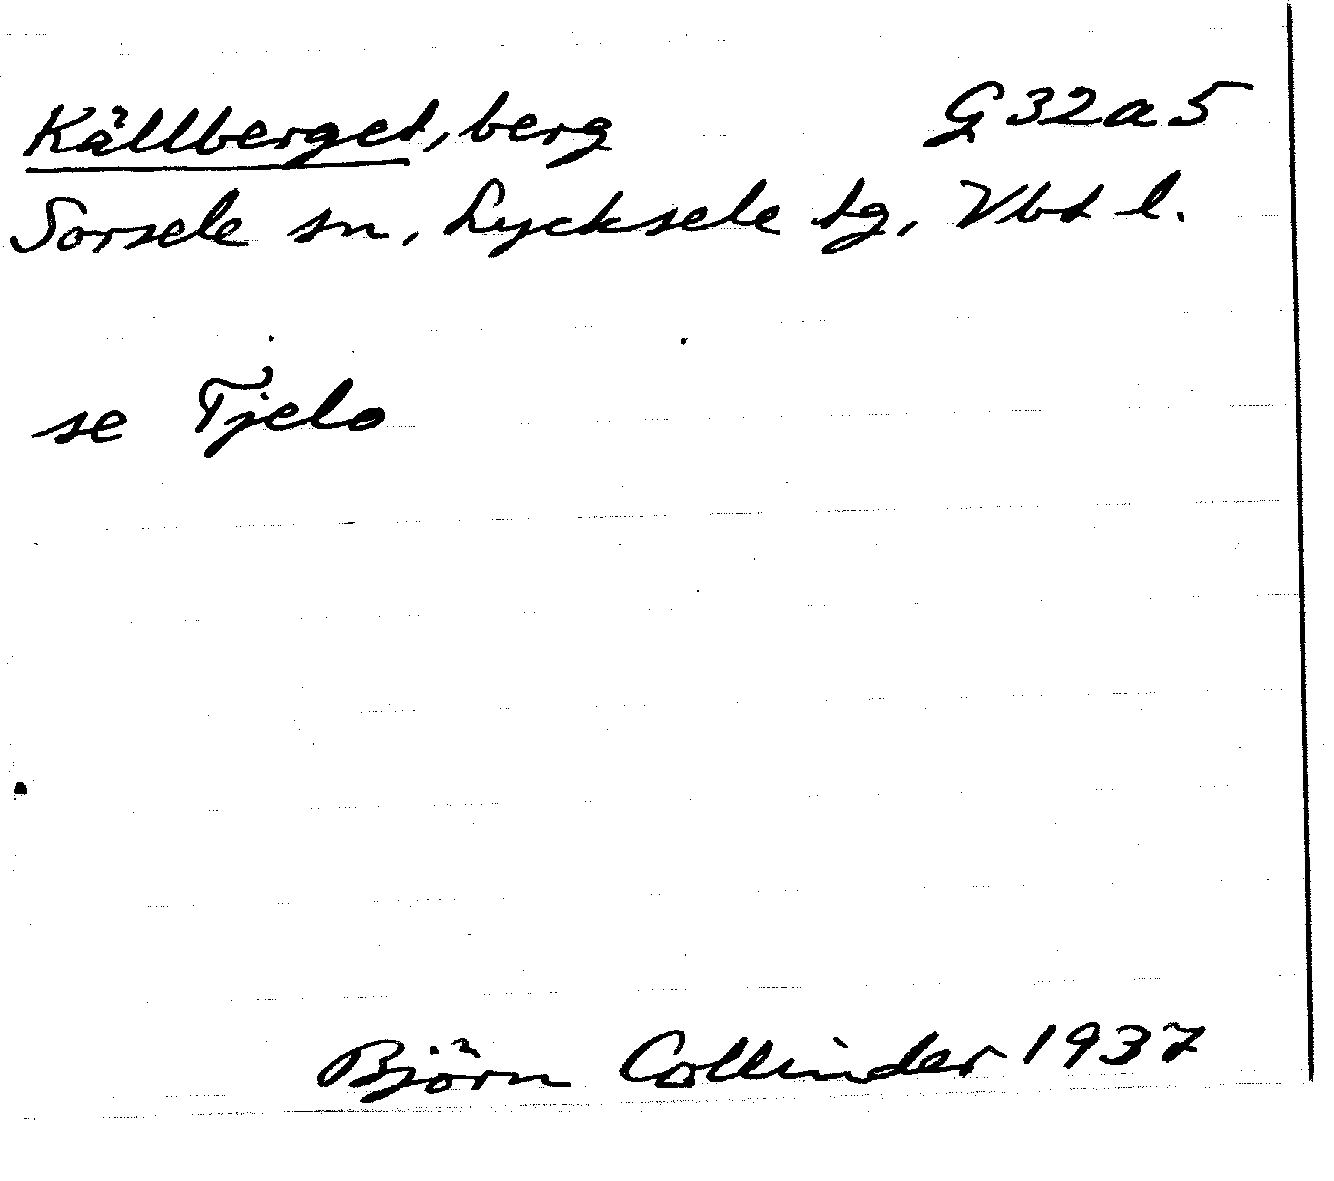 Källberget, berg G32a5
Sorsele sn, Lycksele tg, Vbt l.
se Tjelo
Björn Collinder 1937